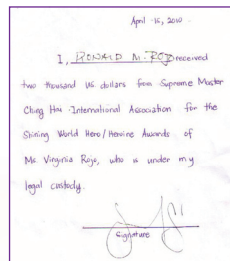 April 15, 2010
I, RONALD M. ROJO received
two thousand US dollars from Supreme Master
Ching Hai International Association for the
Shining World Hero/Heroine Awards of
Ms. Virginia Rojo, who is under my
legal custody.
Signature